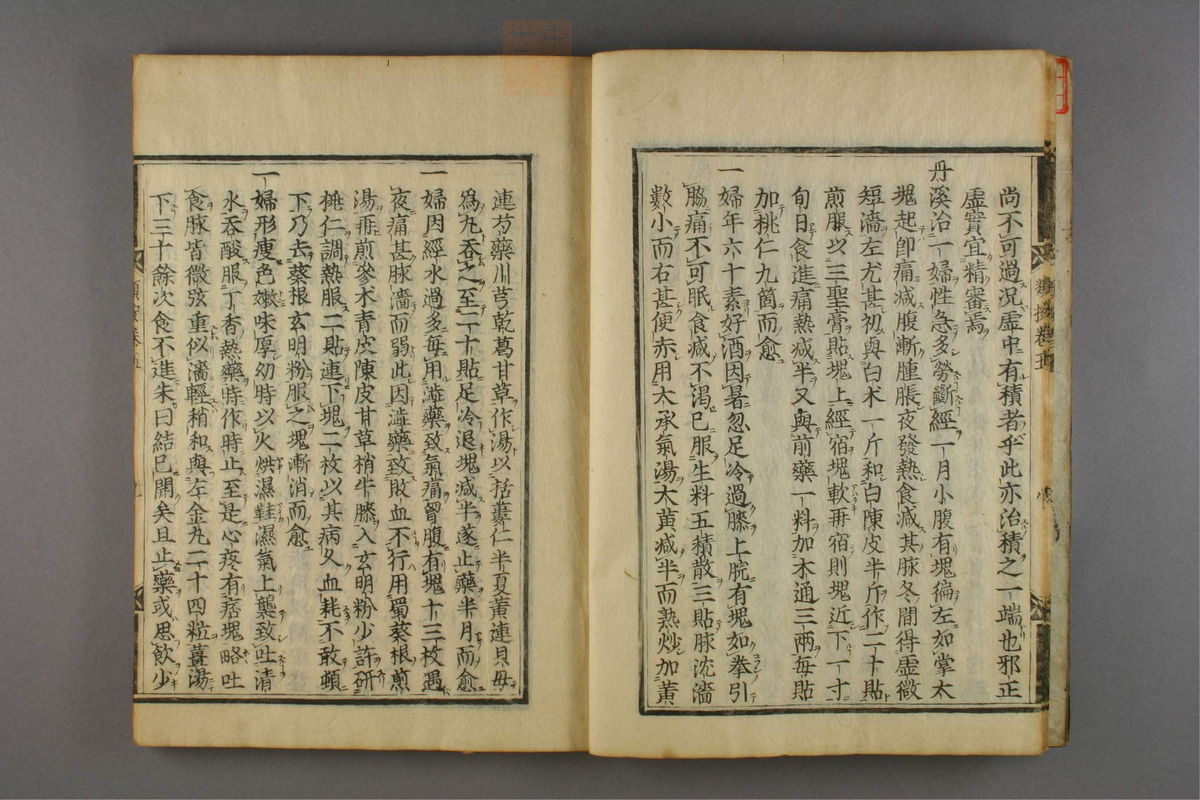 尚不可過況虛中有積者乎此亦治積之一端也邪正
虛實宜精審焉
丹溪治一婦性急多勞斷經一月小腹有塊偏左如掌大
塊起卽痛減腹漸腫脹夜發熱食減其脉冬間得虛微
短濇左尤甚初與白朮一斤和白陳皮半斤作二十貼
煎服以三聖膏貼塊上經宿塊軟再宿則塊近下一寸
旬日食進痛熱減半又與前藥一料加木通三兩每貼
加桃仁九箇而愈
一婦年六十素好酒因暑忽足冷過膝上脘有塊如拳引
脇痛不可眠食減不渴已服生料五積散三貼脉沈濇
數小而右甚便赤用大承氣湯大黃減半而熟炒加黃
連芍藥川芎乾葛甘草作湯以括蔞仁半夏黃連貝母
爲丸吞之至二十貼足冷退塊減半遂止藥半月而愈
一婦因經水過多每用澁藥致氣痛胷腹有塊十三枚遇
夜痛甚脉濇而弱此因澁藥致敗血不行用蜀葵根煎
湯再煎參朮青皮陳皮甘草梢牛膝入玄明粉少許研
桃仁調熱服二貼連下塊二枚以其病久血耗不敢頓
下乃去葵根玄明粉服之塊漸消而愈
一婦形瘦色嫩味厚幼時以火烘濕鞋濕氣上襲致吐清
水吞酸服丁香熱藥時作時止至是心疼有痞塊略吐
食脉皆微弦重似濇輕稍和與左金丸二十四粒薑湯
下三十餘次食不進朱曰結已開矣且止藥或思飲少